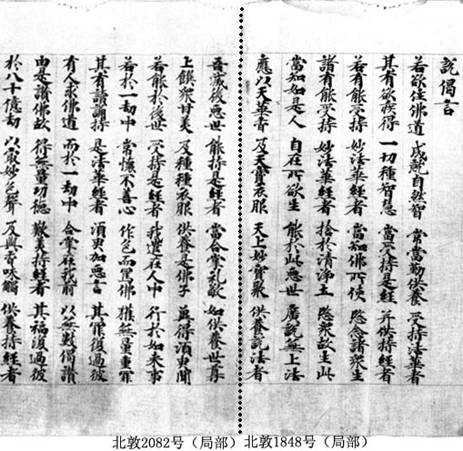 說偈言
若欲住佛道 成就自然智 常當勤供養 受持法華者
其有欲疾得 一切種智慧 當受持是經 并供持經者
若有能受持 妙法華經者 當知佛所使 愍念諸衆生
諸有能受持 妙法華經者 捨於清淨土 愍衆故生此
當知如是人 自在所欲生 能於此惡世 廣說無上法
應以天華香 及天寶衣服 天上妙寶聚 供養說法者
吾滅後惡世 能持是經者 當合掌礼敬 如供養世尊
上饌衆甘美 及種種衣服 供養是佛子 冀得須臾聞
若能於後世 受持是經者 我遣在人中 行於如來事
若於一劫中 常懷不善心 作色而罵佛 獲無量重罪
其有讀誦持 是法華經者 須臾加惡言 其罪復過彼
有人求佛道 而於一劫中 合掌在我前 以無數偈讚
由是讚佛故 得無量功德 歎美持經者 其福復過彼
於八十億劫 以最妙色聲 及與香味觸 供養持經者
北敦2082号（局部）北敦1848号（局部）